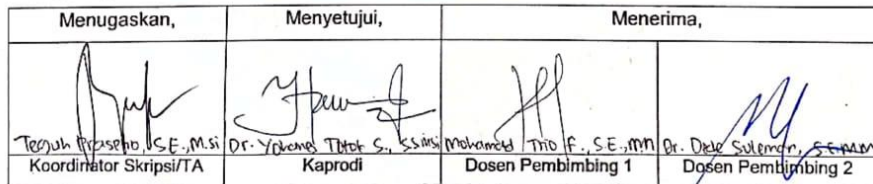 Menugaskan,
Menyetujui,
Menerima,
Teguh Prasetio, S.E., M.si
Dr. Totok S., S.Si, Msi
Mohamad Trio F., S.E., mm
Dr. Dede Suleman, S.E., M.M
Koordinator Skripsi/TA
Kaprodi
Dosen Pembimbing 1
Dosen Pembimbing 2